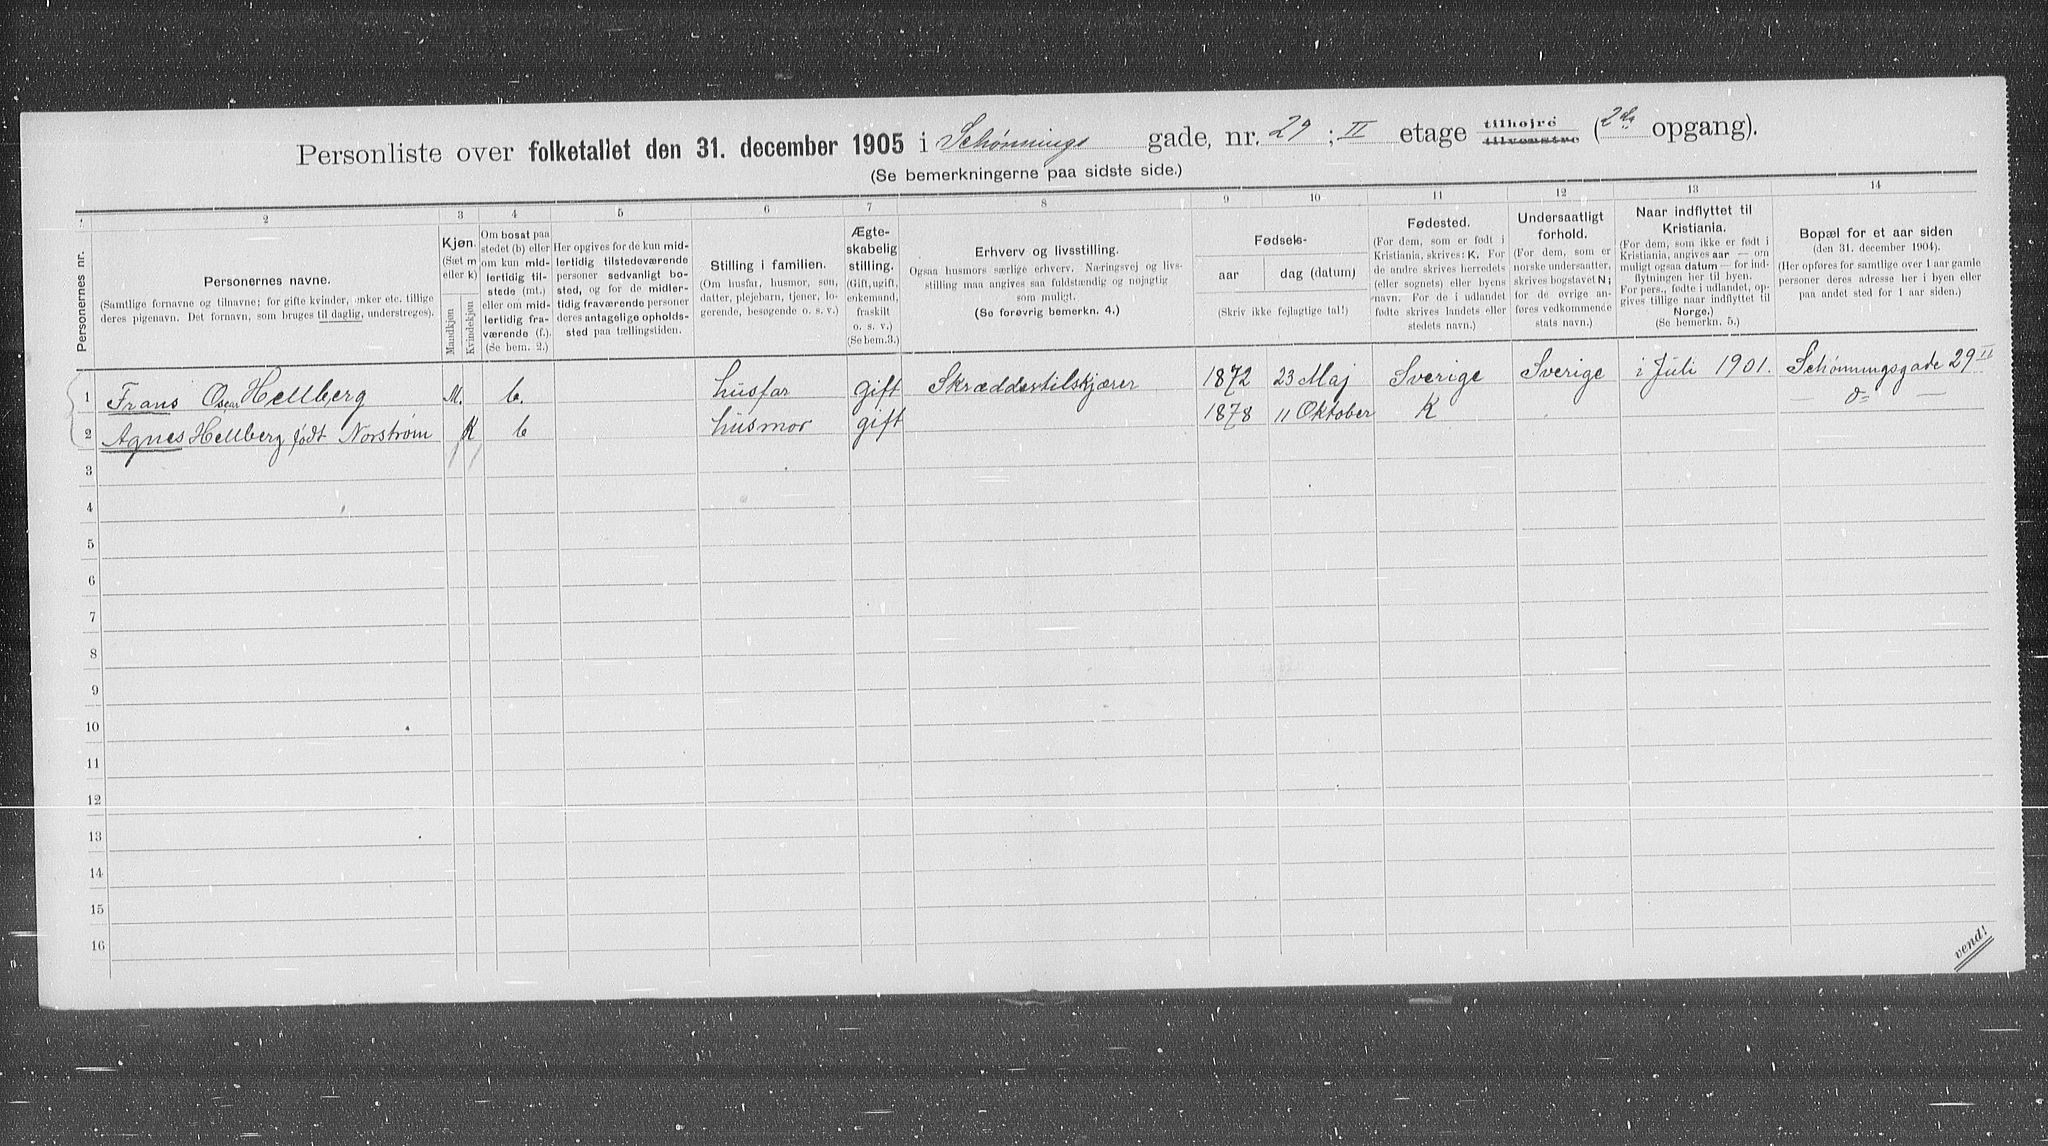 Personliste over folketallet den 31. december 1905 i Schønnings gade, nr. 29 ; II etage tilhøjre tilvenstre (2den opgang).
(Se bemerkningerne paa sidste side.)
1 2 3 4 5 6 7 8 9 10 11 12 13 14
Personernes nr.
Personernes navne.
(Samtlige fornavne og tilnavne; for gifte kvinder, enker etc. tillige
deres pigenavn. Det fornavn, som bruges til daglig, understreges).
Kjøn.
(Sæt m
eller k)
Mandkjøn
Kvindekjøn
Om bosat paa
stedet (b) eller
om kun mid-
lertidig til-
stede (mt.)
eller om mid-
lertidig fra-
værende (f.).
(Se bem. 2.)
Her opgives for de kun mid-
lertidig tilstedeværende
personer sedvanligt bo-
sted, og for de midler-
tidig fraværende personer
deres antagelige opholds-
sted paa tællingstiden.
Stilling i familien.
(Om husfar, husmor, søn,
datter, plejebarn, tjener, lo-
gerende, besøgende o. s. v.)
Ægte-
skabelig
stilling.
(Gift, ugift,
enkemand,
fraskilt
o. s. v.)
(Se bem. 3.)
Erhverv og livsstilling.
Ogsaa husmors særlige erhverv. Næringsvej og livs-
stilling maa angives saa fuldstændig og nøjagtig
som muligt.
(Se forøvrig bemerkn. 4.)
Fødsels-
aar dag (datum)
(Skriv ikke fejlagtige tal!)
Fødested.
(For dem, som er født i
Kristiania, skrives: K. For
de andre skrives herredets
(eller sognets) eller byens
navn. For de i udlandet
fødte skrives landets eller
stedets navn.)
Undersaatligt
forhold.
(For dem, som er
norske undersaatter,
skrives bogstavet N;
for de øvrige an-
føres vedkommende
stats navn.)
Naar indflyttet til
Kristiania.
(For dem, som ikke er født i
Kristiania, angives aar — om
muligt ogsaa datum — for ind-
flytningen her til byen.
For pers., fødte i udlandet, op-
gives tillige naar indflyttet til
Norge.)
(Se bemerkn. 5.)
Bopæl for et aar siden
(den 31. december 1904).
(Her opføres for samtlige over 1 aar gamle
personer deres adresse her i byen eller
paa andet sted for 1 aar siden.)
1 Frans Oscar Hellberg M. b. husfar gift Skræddertilskjærer 1872 23 Maj Sverige Sverige i Juli 1901. Schønningsgade 29 II
2 Agnes Hellberg født Norstrøm K b husmor gift 1878 11 Oktober K — do —
3
4
5
6
7
8
9
10
11
12
13
14
15
16
vend!